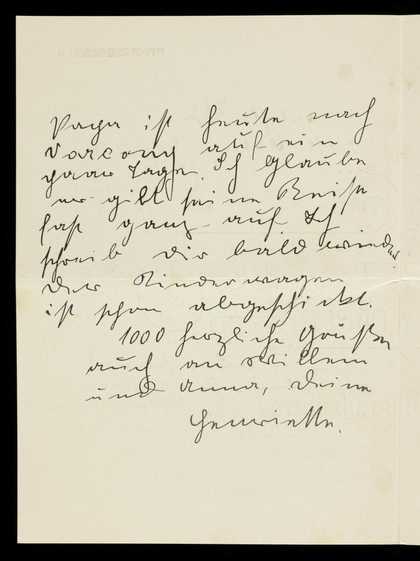 Papa ist heute nach
auf ein
paar Tage. Ich glaube
er gibt seine Reise
fast ganz auf. Ich
schreib Dir bald wieder.
Der Kinderwagen
ist schon abgeschickt.
1000 herzliche Grüße
auch an Willem
und Anna, Deine
Henriette.